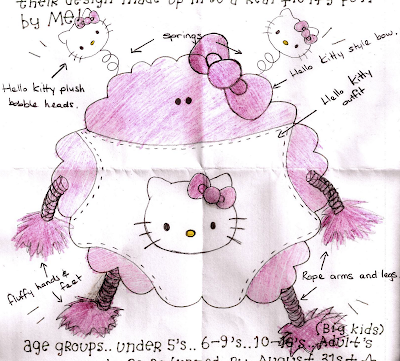 their design made up in to a real
by ME!
springs
Hello Kitty plush
bobble heads.
Hello Kitty style bow.
Hello Kitty
outfit
fluffy hands &
feet
Rope arms and legs.
(Big kids)
age groups.. under 5's.. 6-9's.. Adult's
by August 31st